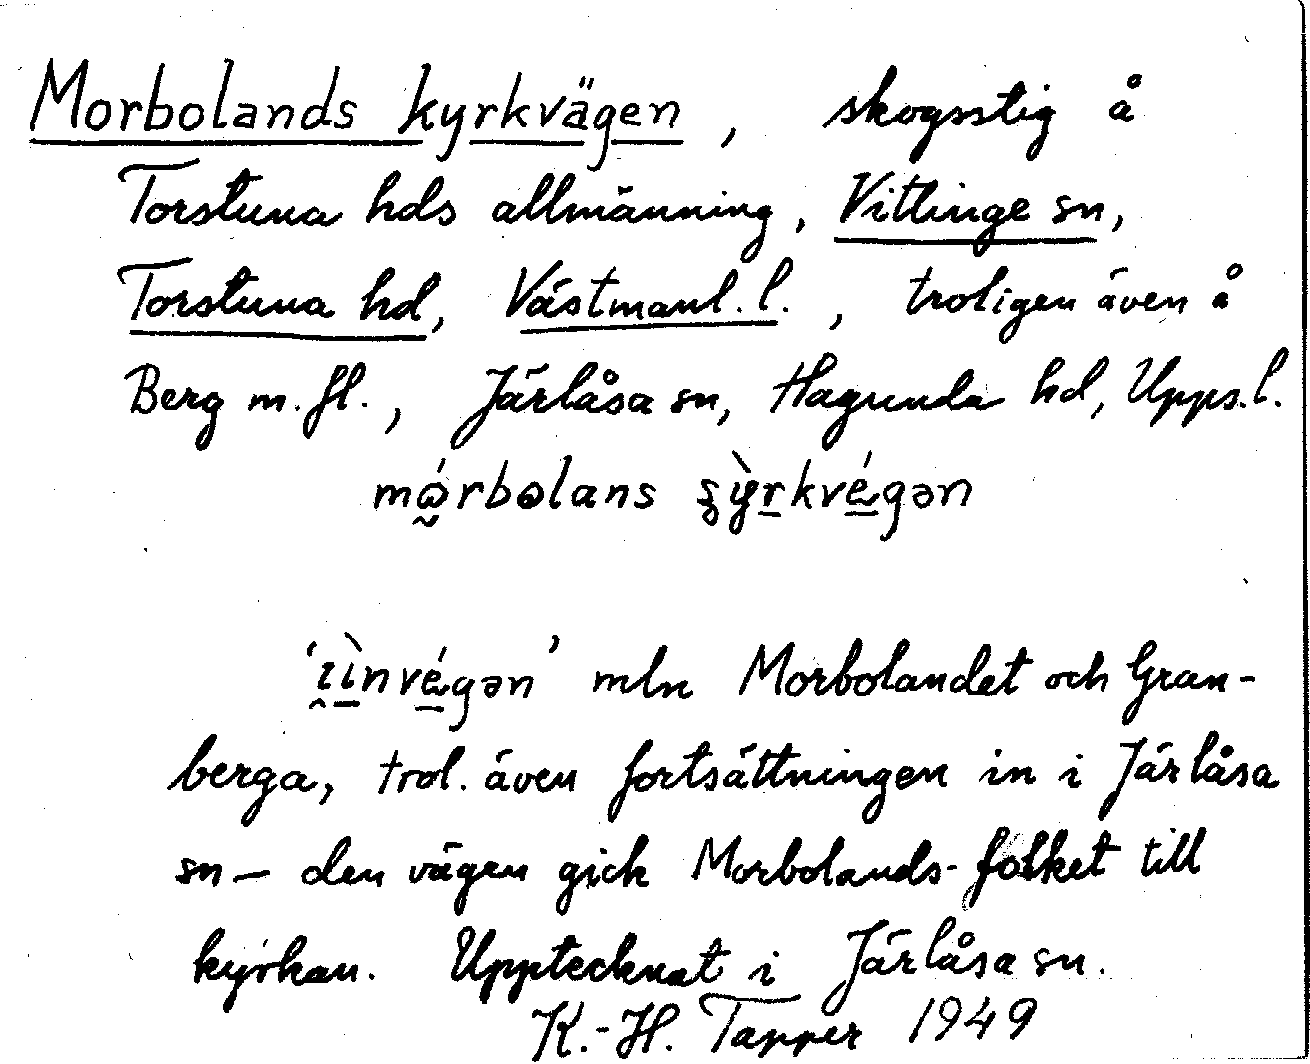 Morbolands kyrkvägen, skogsstig å
Torstuna hds allmänning, Vittinge sn,
Torstuna hd, Västmanl. l., troligen även å
Berg m. fl., Järlåsa sn, Hagunda hd, Upps. l.
mó̰rbolans ʂỳr̠kvé̠gən
'ɪ̭ì̠nvé̠gən' mln Morbolandet och Gran-
berga, trol. även fortsättningen in i Järlåsa
sn – den vägen gick Morbolands-folket till
kyrkan. Upptecknat i Järlåsa sn.
K.-H. Tapper 1949